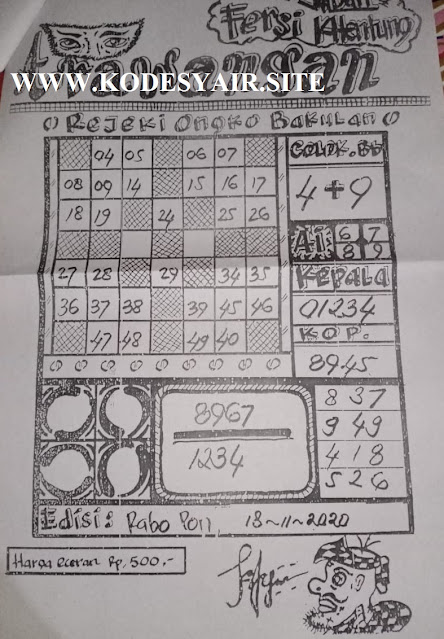 Fersi Mbah KHentung
Trawangan
WWW.KODESYAIR.SITE
Rejeki Ongko Bakulan
04 05 06 07
08 09 14 15 16 17
18 19 24 25 26
27 28 29 34 35
36 37 38 39 45 46
47 48 49 40
COLOK.BB
4+9
AI 6 7
8 9
KEPALA
01234
KOP.
89.45
8967
1234
8 37
9 49
4 18
5 26
Edisi: Rabo Pon, 18~11~2020
Harga eceran Rp, 500,-